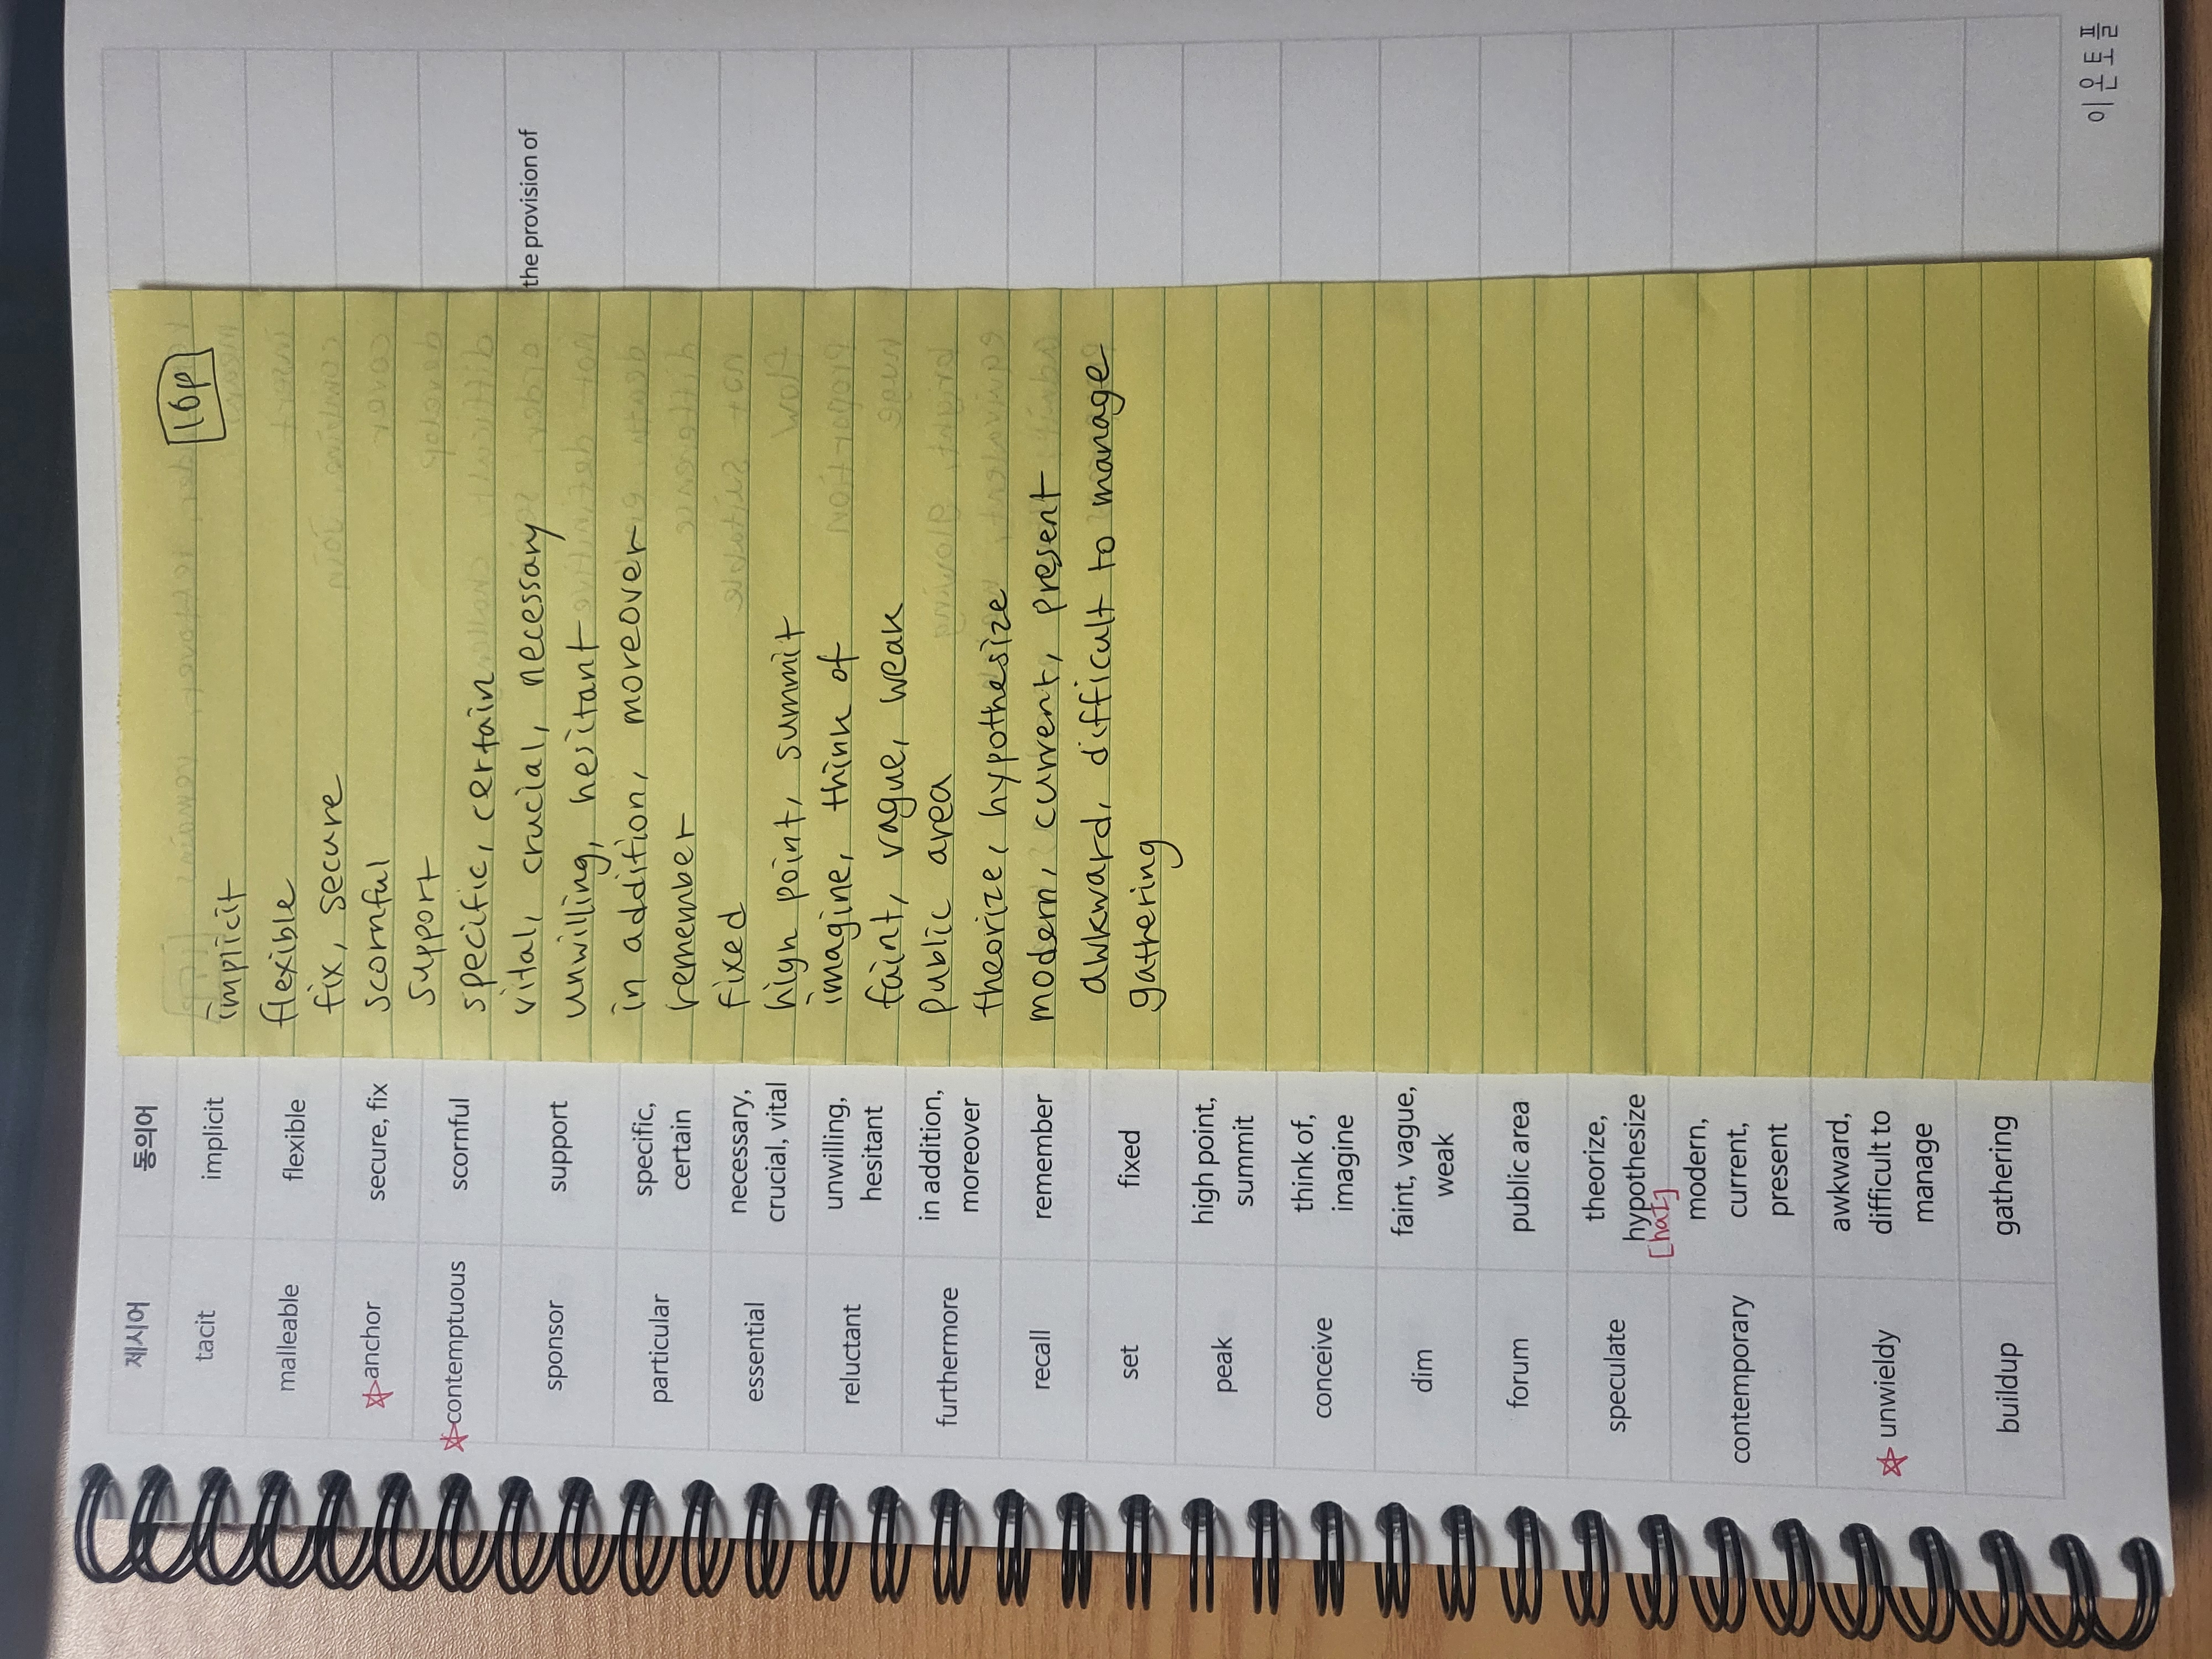 제시어 동의어
tacit implicit
malleable flexible
☆anchor secure, fix
☆contemptuous scornful
sponsor support
particular specific,
certain
essential necessary,
crucial, vital
reluctant unwilling,
hesitant
furthermore in addition,
moreover
recall remember
set fixed
peak high point,
summit
conceive think of,
imagine
dim faint, vague,
weak
forum public area
speculate theorize,
hypothesize
[haɪ]
contemporary modern,
current,
present
☆ unwieldy awkward,
difficult to
manage
buildup gathering
16p
implicit
flexible
fix, secure
scornful
support
specific, certain
vital, crucial, necessary
unwilling, hesitant
in addition, moreover
remember
fixed
high point, summit
imagine, think of
faint, vague, weak
public area
theorize, hypothesize
modern, current, present
awkward, difficult to manage
gathering
the provision of
이윤토플